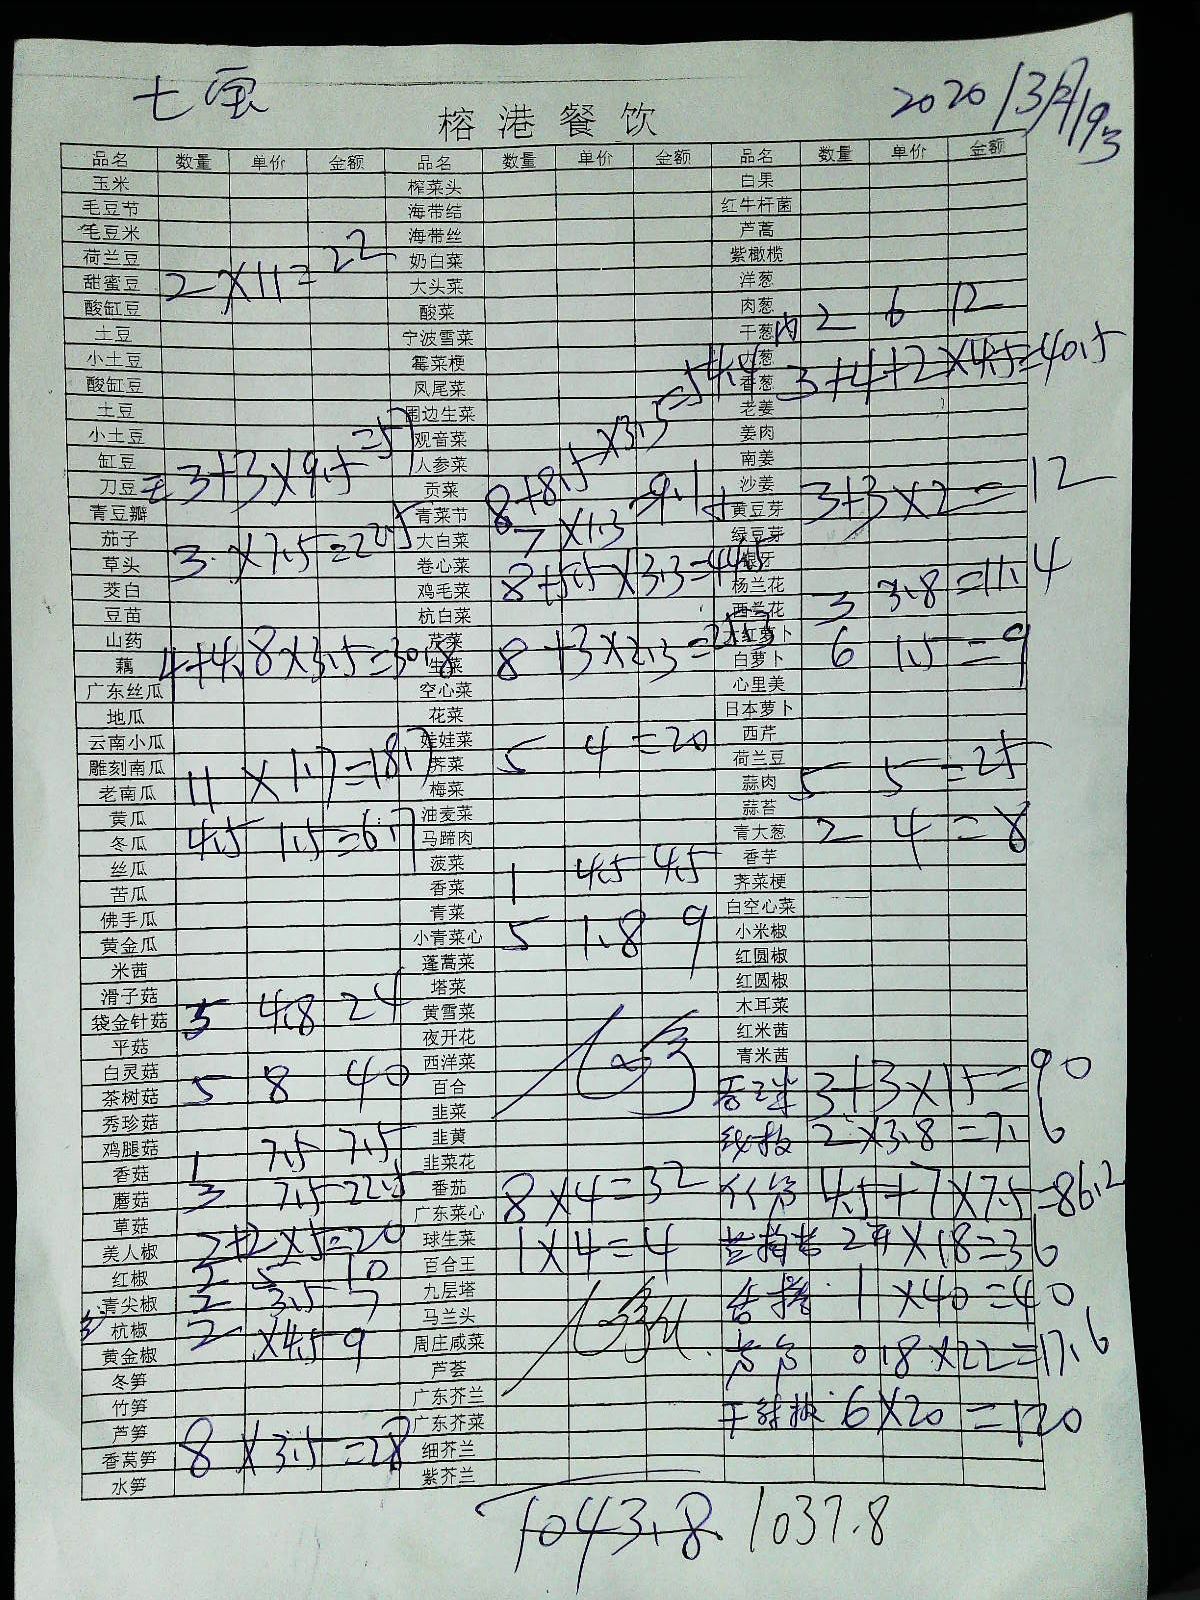 七宝
2020/3月/193
榕港餐饮
品名 数量 单价 金额 品名 数量 单价 金额 品名 数量 单价 金额
玉米 榨菜头 白果
毛豆节 海带结 红牛杆菌
毛豆米 海带丝 芦蒿
荷兰豆 奶白菜 紫橄榄
甜蜜豆 2×11=22 大头菜 洋葱
酸缸豆 酸菜 肉葱
土豆 宁波雪菜 干葱肉 2 6 12
小土豆 霉菜梗 大葱
酸缸豆 凤尾菜 香葱 3+4+2×4.5=40.5
土豆 围边生菜 老姜
小土豆 观音菜 姜肉
缸豆 人参菜 南姜
刀豆 3+3×9.5=57 贡菜 8+8.5×3.3=54.4 沙姜
青豆瓣 青菜节 黄豆芽 3+3×2=12
茄子 3×7.5=22.5 大白菜 7×1.3=9.1 绿豆芽
草头 卷心菜 银牙
茭白 鸡毛菜 8+5.5×3.3=44.5 杨兰花
豆苗 杭白菜 西兰花 3 3.8=11.4
山药 芹菜 大红萝卜
藕 4+4.8×3.5=30.8 生菜 8+3×2.3=25.3 白萝卜 6 1.5=9
广东丝瓜 空心菜 心里美
地瓜 花菜 日本萝卜
云南小瓜 娃娃菜 5 4=20 西芹
雕刻南瓜 荠菜 荷兰豆
老南瓜 11×1.7=18.7 梅菜 蒜肉 5 5=25
黄瓜 油麦菜 蒜苔
冬瓜 4.5 1.5=6.7 马蹄肉 青大葱 2 4=8
丝瓜 菠菜 香芋
苦瓜 香菜 1 4.5 4.5 荠菜梗
佛手瓜 青菜 白空心菜
黄金瓜 小青菜心 5 1.8 9 小米椒
米茜 蓬蒿菜 红圆椒
滑子菇 塔菜 红圆椒
袋金针菇 5 4.8 24 黄雪菜 木耳菜
平菇 夜开花 红米茜
白灵菇 西洋菜 青米茜
茶树菇 5 8 40 百合 3+3×15=90
秀珍菇 韭菜
鸡腿菇 韭黄 线椒 2×3.8=7.6
香菇 1 7.5 7.5 韭菜花
蘑菇 3 7.5 22.5 番茄 8×4=32 4.5+7×7.5=86.2
草菇 广东菜心
美人椒 2+2×5=20 球生菜 1×4=4 2×18=36
红椒 2 5 10 百合王
青尖椒 2 3.5 7 九层塔 1×40=40
杭椒 2×4.5 9 马兰头
黄金椒 周庄咸菜 0.8×22=17.6
冬笋 芦荟
竹笋 广东芥兰 干辣椒 6×20=120
芦笋 广东芥菜
香莴笋 8×3.5=28 细芥兰
水笋 紫芥兰
1043.8 1037.8